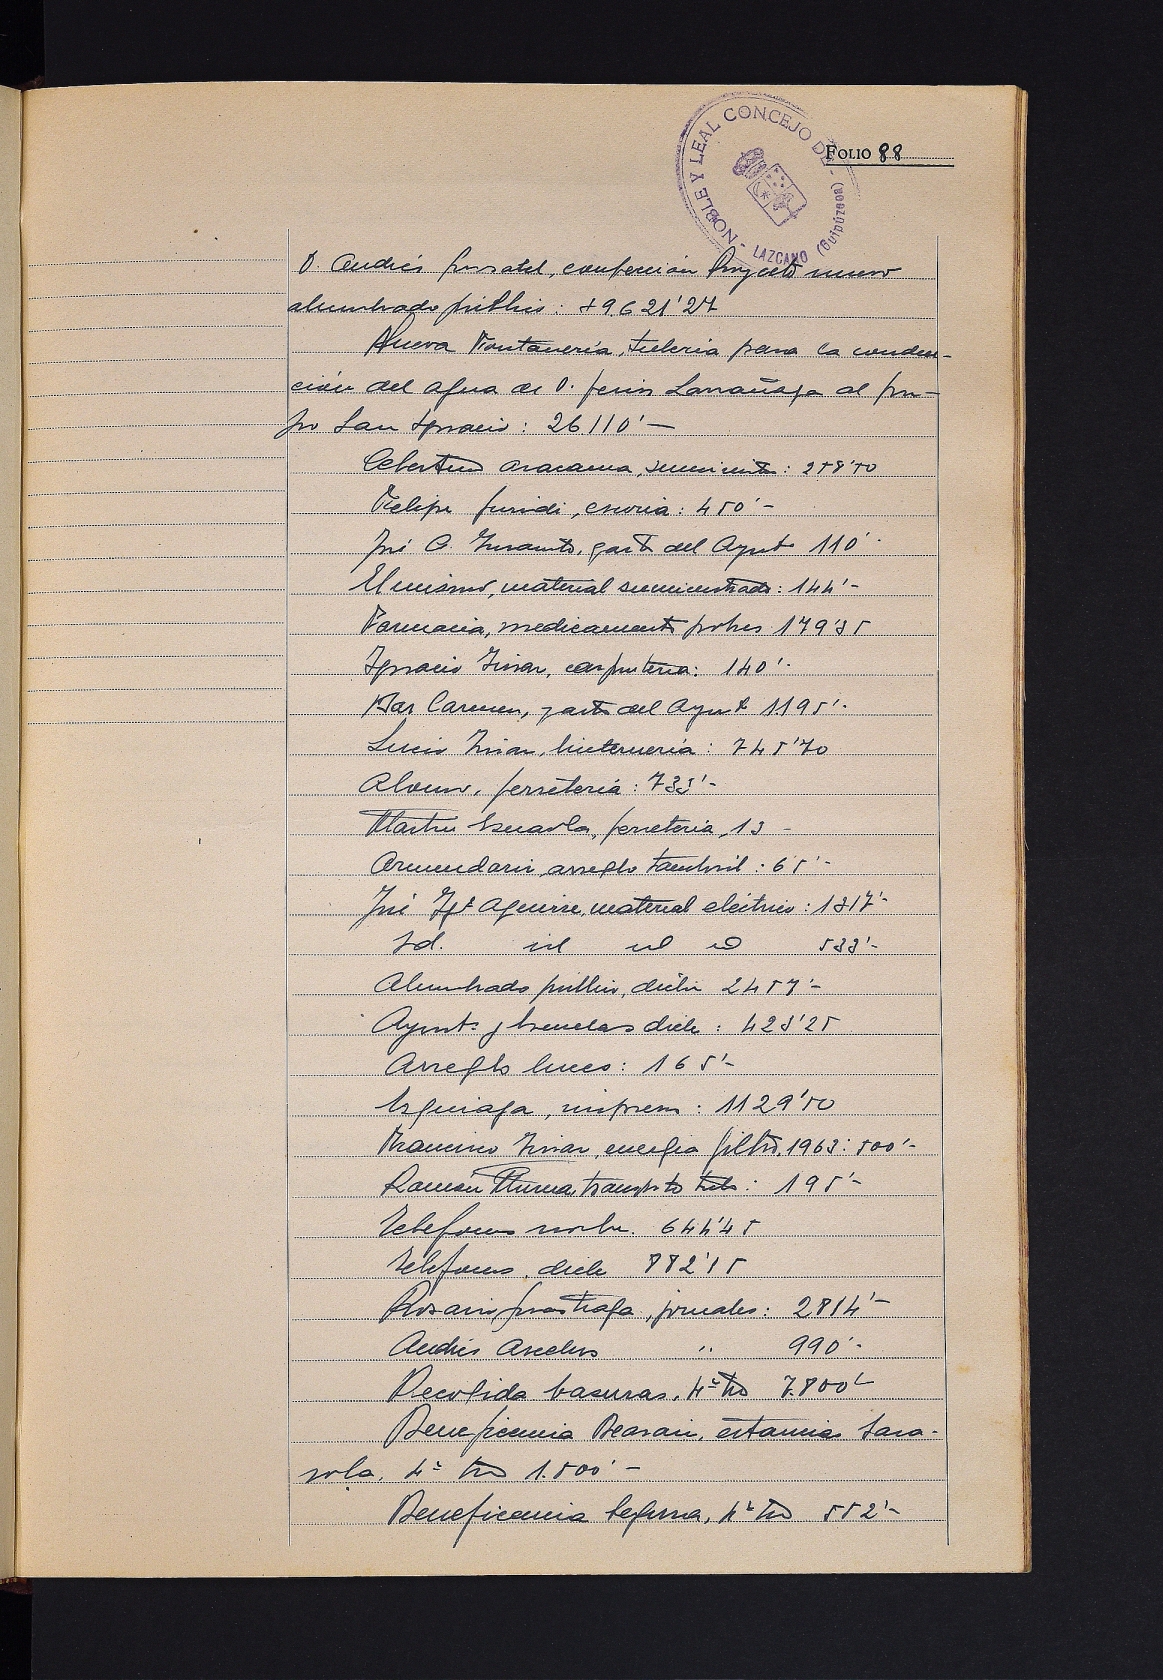 NOBLE Y LEAL CONCEJO DE - LAZCANO (Guipúzcoa)
FOLIO 88
D. Andrés, confección Proyecto nuevo
alumbrado público: 9.621'27
Nueva Fontanería, tubería para la conduc-
ción del agua de D. Larrañaga al gru-
po San Ignacio: 26.110'-
Aracama, suministro: 258'50
Felipe, escoria: 450'-
José, gasto del Aynt° 110'-
El mismo, material suministrado: 144'-
Farmacia, medicamentos pobres 179'35
Ignacio, carpintería: 140'-
Bar Carmen, gasto del Aynt° 1195'-
Lucio, linternería: 745'70
ferretería: 733'-
Martín, ferretería, 13 -
Armendariz, arreglo tamboril: 65'-
José Ig° Aguirre, material eléctrico: 1317'-
Id. id id id 533'-
Alumbrado público, dicbre 2457'-
Aynt° y Escuelas dicbe: 423'25
Arreglo luces: 165'-
imprenta: 1129'50
Francisco, energía filtro, 1963: 500'-
Ramón, transporte tubo: 195'-
Teléfonos novbre. 644'45
Teléfonos, dicbe 882'15
Rosario, jornales: 2814'-
Andrés Arcelus " 990'-
Recogida basuras, 4º tre 7.800'-
Beneficencia Beasain, estancias Sara-
sola, 4º tre 1.500'-
Beneficencia Segura, 4º tre 552'-